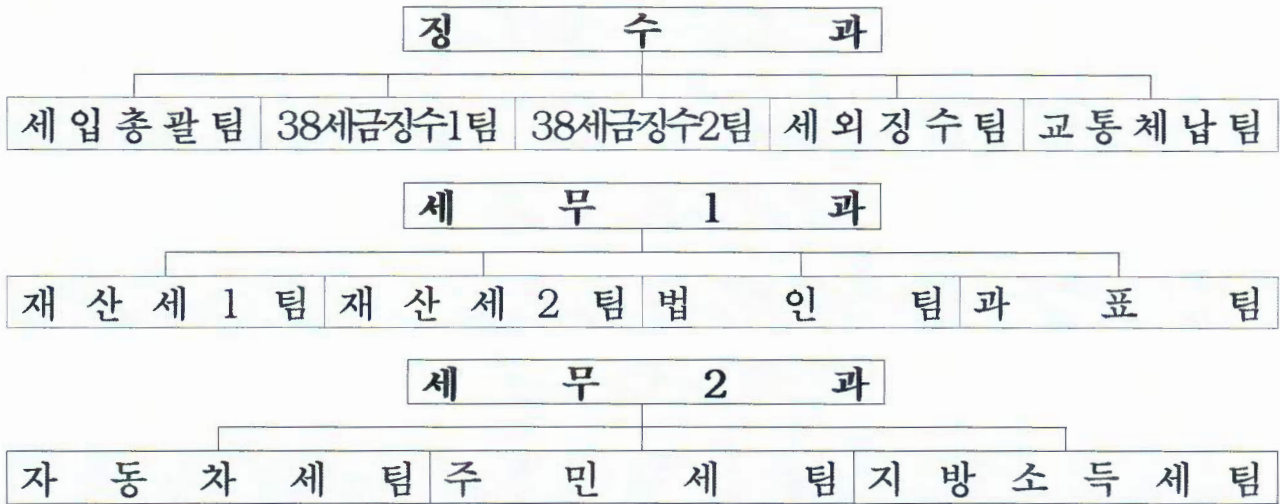 징 수 과
세 입 총 괄 팀 38세금징수1팀 38세금징수2팀 세 외 징 수 팀 교 통 체 납 팀
세 무 1 과
재 산 세 1 팀 재 산 세 2 팀 법 인 팀 과 표 팀
세 무 2 과
자 동 차 세 팀 주 민 세 팀 지 방 소 득 세 팀